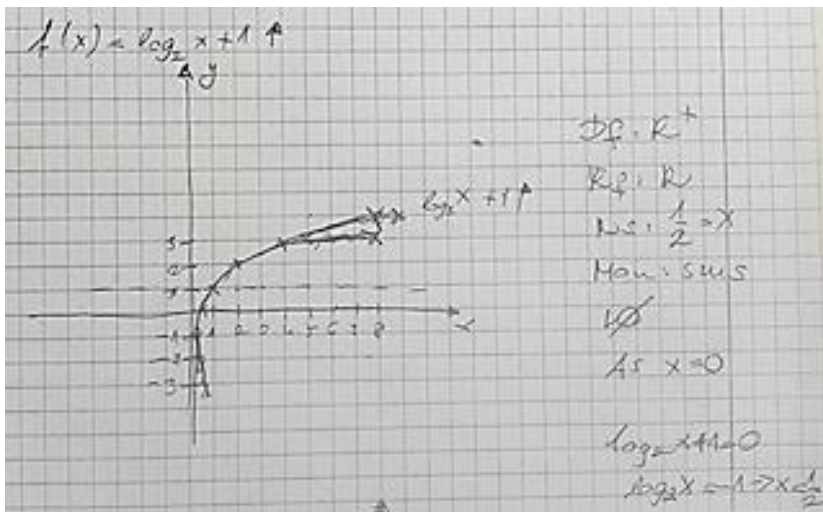 f(x) = log₂ x + 1 ↑
y
log₂ x + 1 ↑
3
2
1
1 2 3 4 5 6 7 8
x
-1
-2
-3
Df: R⁺
Rf: R
Ns: 1/2 = x
Mon: sms
As x=0
log₂x+1=0
log₂x=-1->x=1/2